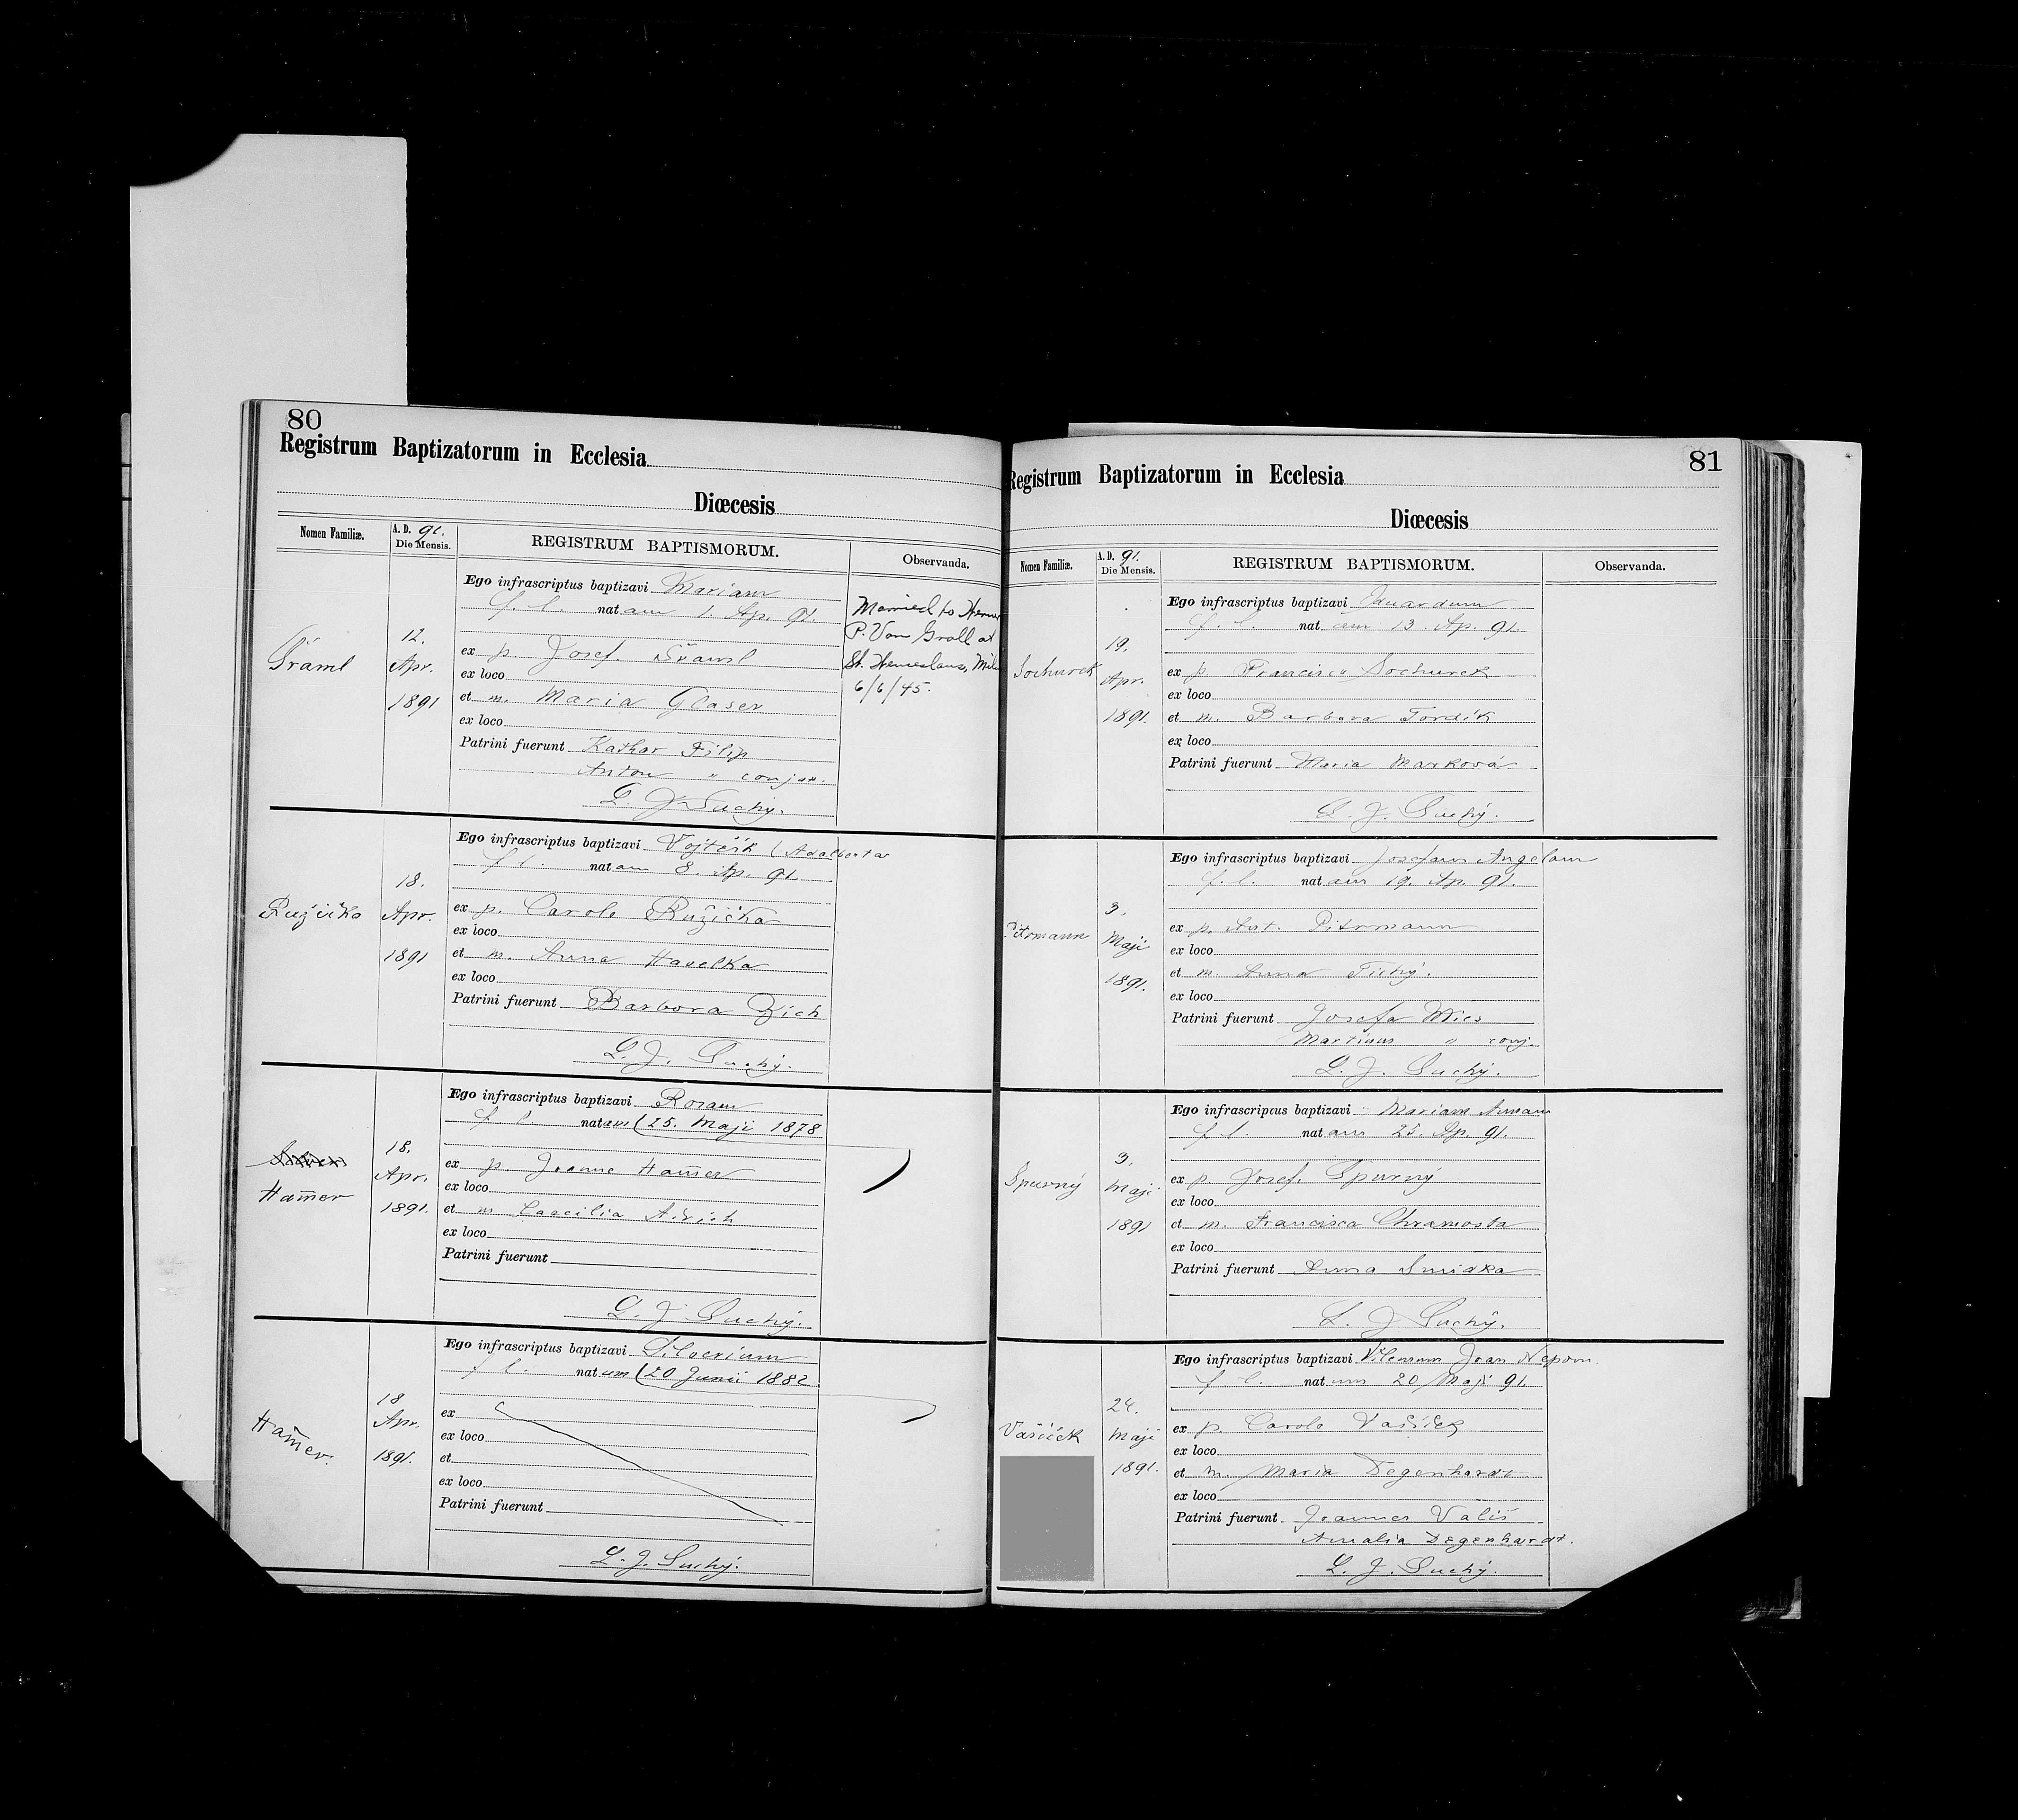 80
Registrum Baptizatorum in Ecclesia
Diœcesis
Nomen Familiæ.
A. D. 91.
Die Mensis.
REGISTRUM BAPTISMORUM.
Observanda.
Šraml
12.
Apr.
1891
Ego infrascriptus baptizavi Mariam
f. l. nat am 1. Ap. 91.
ex p. Josef. Šraml
ex loco
et m. Maria Glaser
ex loco
Patrini fuerunt Kathar Filip
Anton " conjux.
L. J. Suchý.
Married to
P. Van Groll at
St. Wenceslaus,
6/6/45.
Ružička
18.
Apr.
1891
Ego infrascriptus baptizavi Vojtěšk (Adalberta
f. l. nat am 8. Ap. 91
ex p. Carolo Ružička
ex loco
et m. Anna Havelka
ex loco
Patrini fuerunt Barbora Zich
L. J. Suchý.
Ham̄er
18.
Apr.
1891.
Ego infrascriptus baptizavi Rosam
f. l. nat am (25. Maji 1878
ex p. Joanne Ham̄er
ex loco
et m Caecilia
ex loco
Patrini fuerunt
L. J Suchý.
Ham̄er.
18
Apr.
1891.
Ego infrascriptus baptizavi Silverium
f l. nat um (20 Junii 1882
ex
ex loco
et
ex loco
Patrini fuerunt
L. J. Suchý.
81
Registrum Baptizatorum in Ecclesia
Diœcesis
Nomen Familiæ.
A. D. 91.
Die Mensis.
REGISTRUM BAPTISMORUM.
Observanda.
Sochurek
19.
Apr.
1891.
Ego infrascriptus baptizavi Eduardum
f. l. nat um 13. Ap. 91.
ex p. Francisco Sochurek
ex loco
et m. Barbora Tordik
ex loco
Patrini fuerunt Maria Marková
L. J. Suchý.
Pitrmann
3.
Maji
1891.
Ego infrascriptus baptizavi Josefam Angelam
f. l. nat am 19. Ap. 91.
ex p. Ant. Pitrmann
ex loco
et m. Anna Tichý.
ex loco
Patrini fuerunt Josefa Mics
Martinus " conj.
L. J. Suchý.
Spurný
3.
Maji
1891
Ego infrascriptus baptizavi Mariam Annam
f. l. nat am 25. Ap. 91.
ex p. Josef. Spurný
ex loco
et m. Francisca Chramosta
ex loco
Patrini fuerunt Anna Smidka
L. J Suchý.
Vašíček
24.
Maji
1891.
Ego infrascriptus baptizavi Vilemum Joan Nepom.
f. l. nat um 20 Maji 91.
ex p. Carolo Vašíček
ex loco
et m. Maria Degenhardt
ex loco
Patrini fuerunt Joannes Vališ
Amalia Degenhardt.
L. J. Suchý.